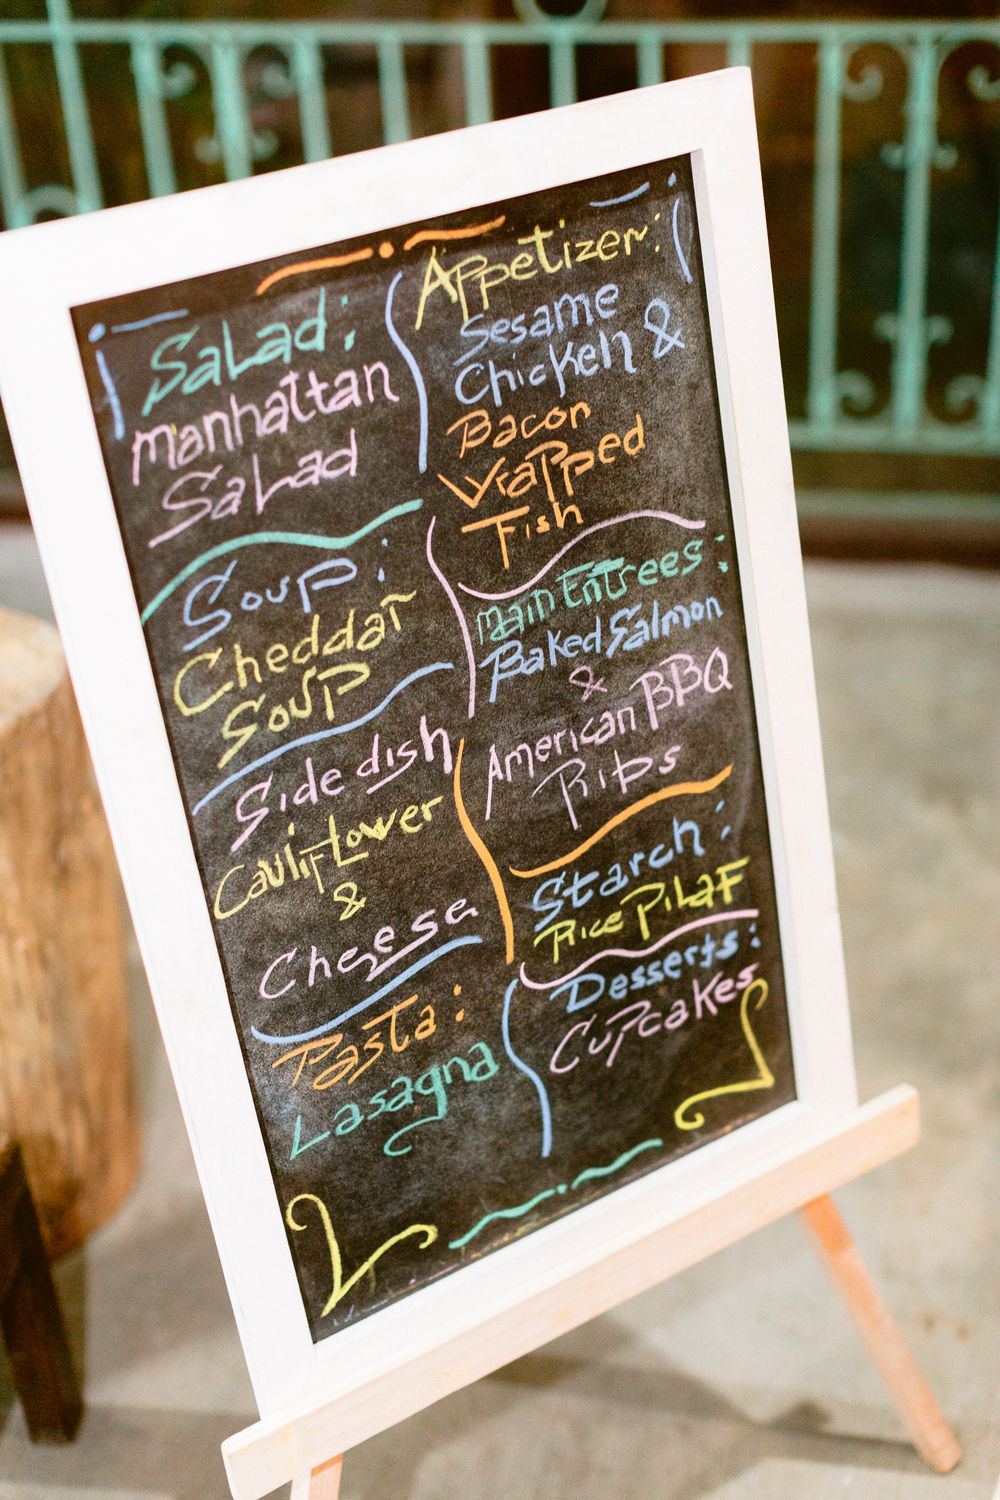 Salad:
Manhattan
Salad
Soup:
Cheddar
Soup
Side dish
Cauliflower
&
Cheese
Pasta:
Lasagna
Appetizer:
Sesame
Chicken &
Bacon
Wrapped
Fish
Main Entrees:
Baked Salmon
&
American BBQ
Ribs
Starch:
Rice Pilaf
Desserts:
Cupcakes